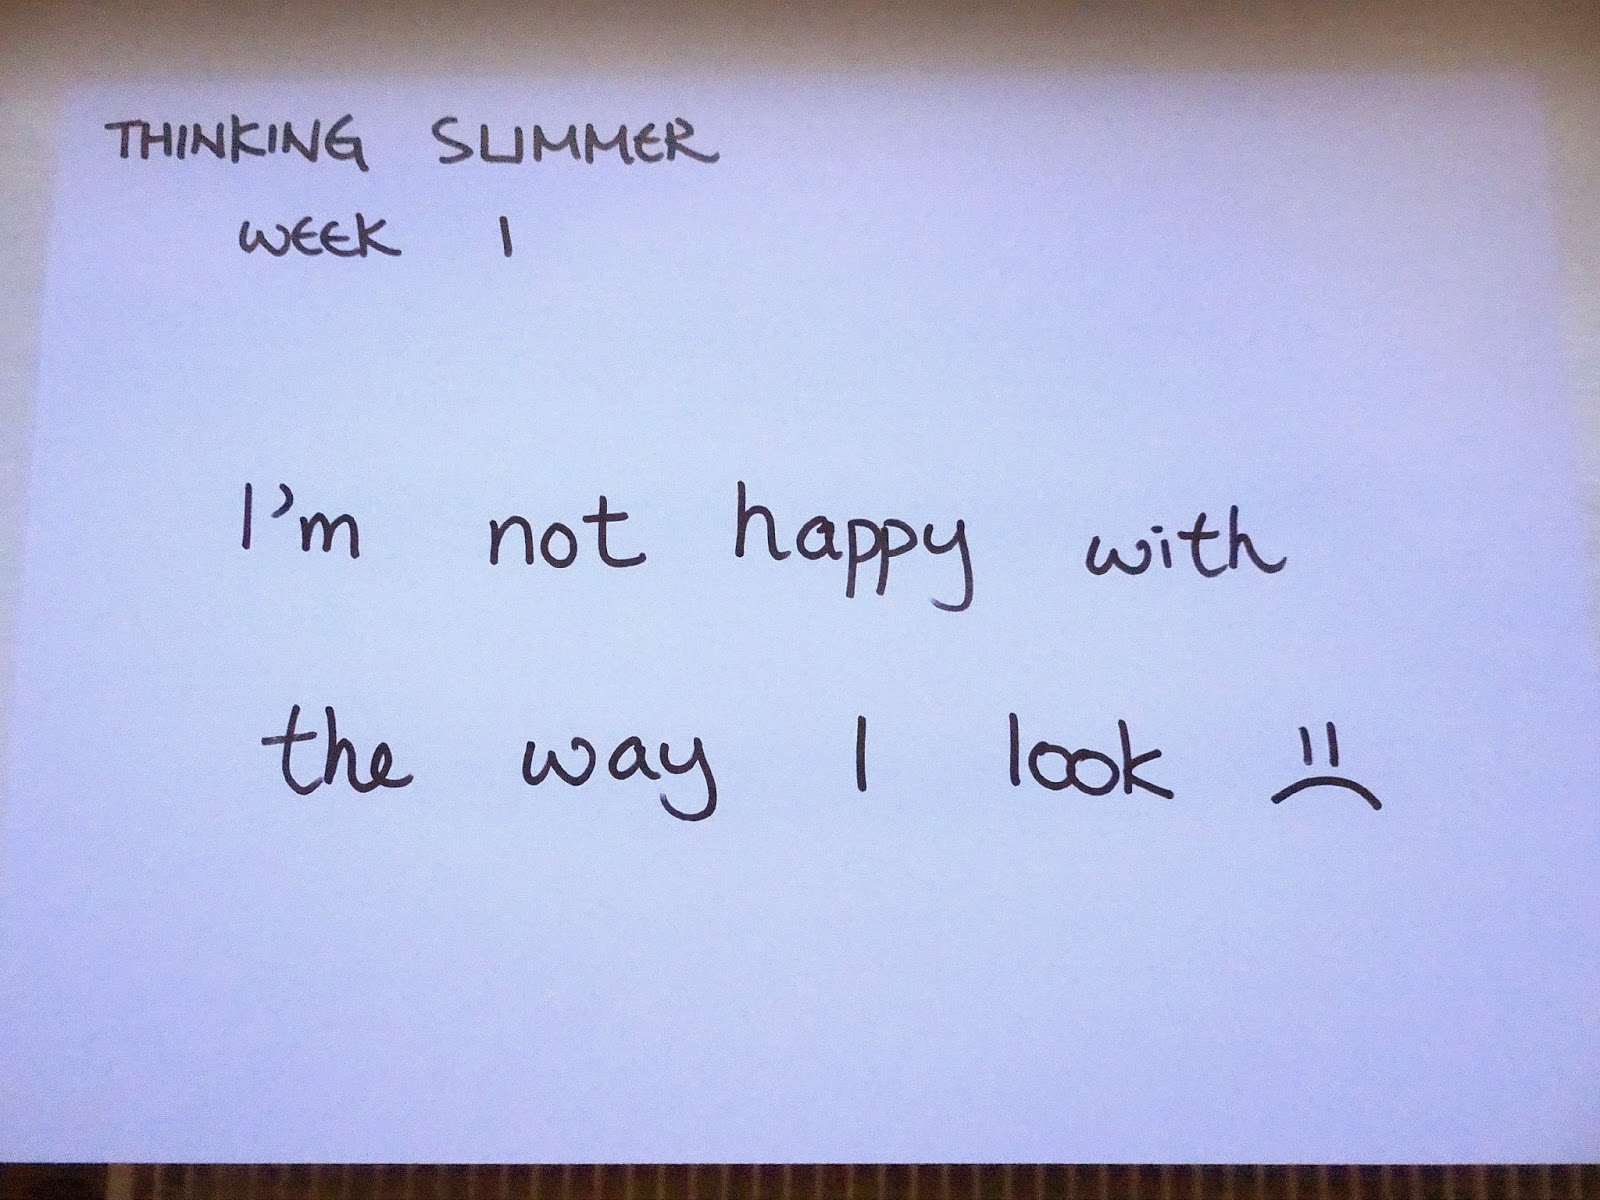 THINKING SLIMMER
WEEK 1
I'm not happy with
the way I look